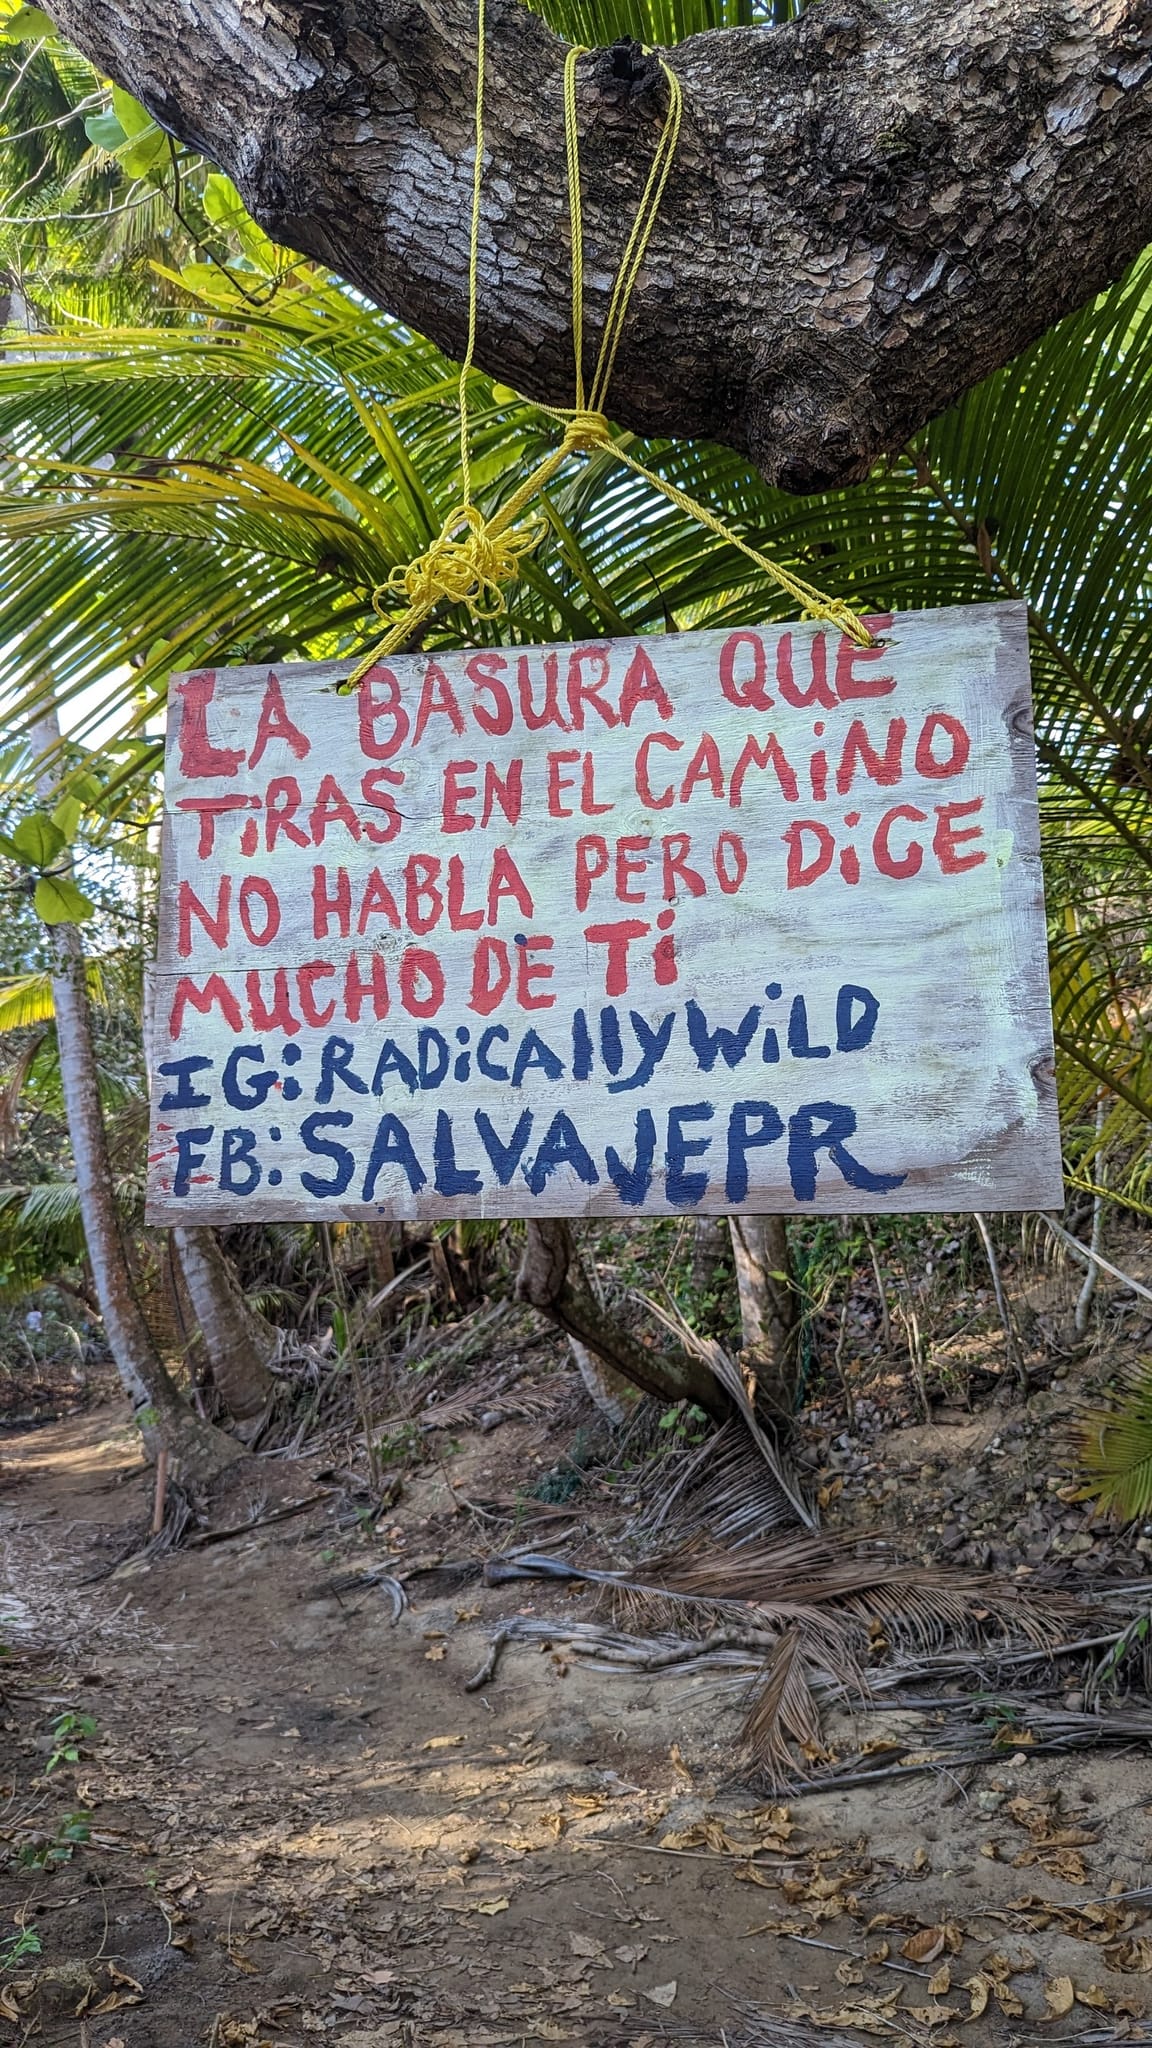 LA BASURA QUE
TiRAS EN EL CAMiNO
NO HABLA PERO DiCE
MUCHO DE Ti
IG: RADiCAllyWiLD
FB: SALVAJEPR